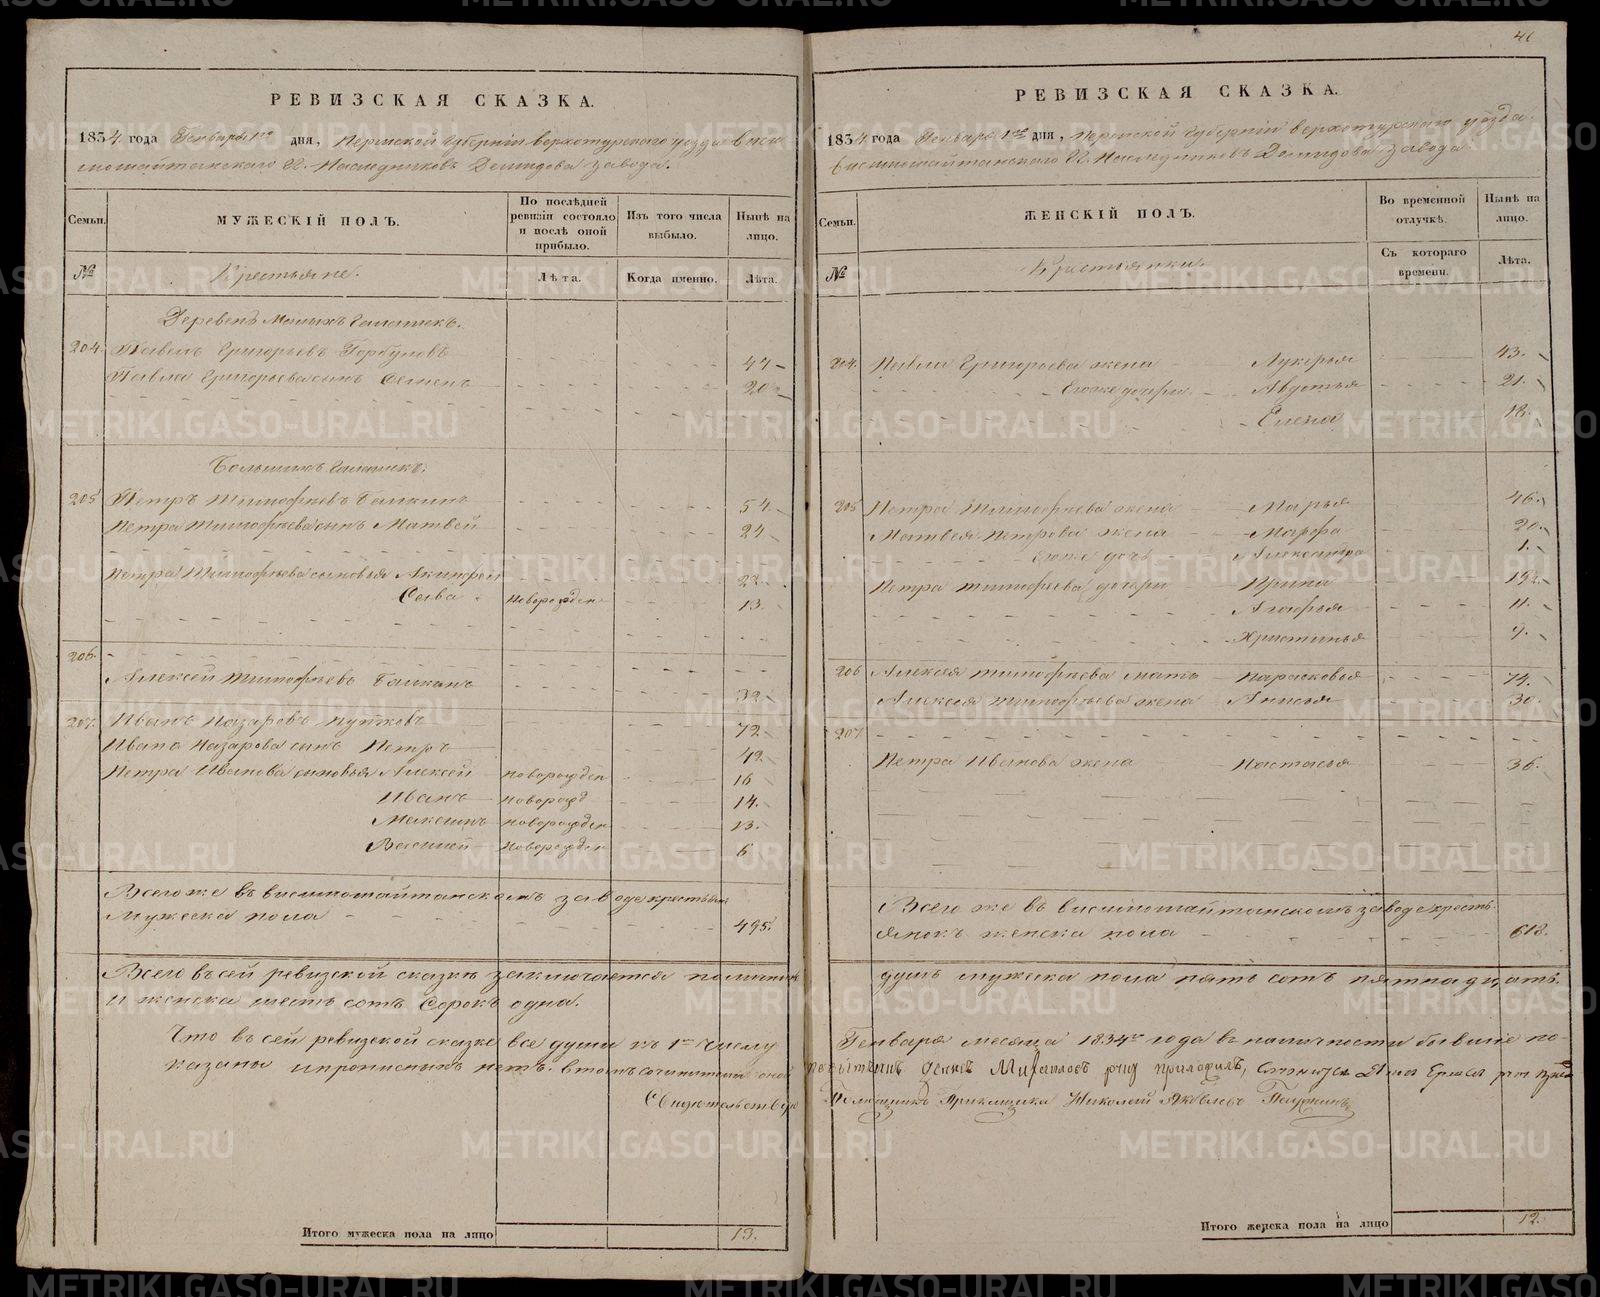 РЕВИЗСКАЯ СКАЗКА.
1834 года Генваря 1го дня, Пермской Губернiи верхотурскаго уезда виси
мошайтанскаго Г. Наследниковъ Демидова завода.
Семьи.
МУЖЕСКІЙ ПОЛЪ.
По послѣдней ревизіи состояло и послѣ оной прибыло.
Изъ того числа выбыло.
Нынѣ на лицо.
№
Крестьяне.
Лѣта.
Когда именно.
Лѣта.
Деревень Малыхъ Галашекъ.
204. Павелъ Григорьевъ Горбуновъ 47
Павла Григорьева сынъ Семенъ 20
Большихъ Галашекъ.
205 Петръ Тимофеевъ 54.
Петра Тимофеева сынъ Матвей 24
Петра Тимофеева сыновья 22.
Сава новорожден 13.
206.
Алексей Тимофеевъ 32
207. Иванъ Назаровъ 72
Ивана Назарова сынъ Петръ 42
Петра Иванова сыновья Алексей новорожден 16
Иванъ новорожд 14.
Максимъ новорожден 13.
Василей новорожден 6
Всего же въ висимошайтанскомъ заводе крестьянъ
Мужеска пола 495.
Всего въ сей ревизской сказке заключается
и женска шесть сотъ сорокъ одна.
Что въ сей ревизской сказке все души къ 1му числу
казаны и прописныхъ нетъ.
Свидетельствую
Итого мужеска пола на лицо 13.
41
РЕВИЗСКАЯ СКАЗКА.
1834 года Генваря 1го дня, Пермской Губернiи верхотурскаго уезда
висимошайтанскаго Г. Наследниковъ Демидова завода
Семьи.
ЖЕНСКІЙ ПОЛЪ.
Во временной отлучкѣ.
Нынѣ на лицо.
№
Крестьянки.
Съ котораго времени.
Лѣта.
204. Павла Григорьева жена Лукерья 43.
Евоже дочери Авдотья 21.
Елена 18.
205 Петра Тимофеева жена Марья 46.
Матвея Петрова жена Марфа 20.
Евоже дочь Александра 1.
Петра Тимофеева дочери Ирина
Агафья 11.
Христинья 9.
206 Алексея Тимофеева мать Парасковья 74.
Алексея Тимофеева жена Анисья 30.
207
Петра Иванова жена Настасья 36.
Всего же въ висимошайтанскомъ заводе кресть-
янокъ женска пола 618.
душъ мужеска пола пять сотъ пятнадцать.
Генваря месяца 1834го года въ наличности бывшiе по-
Михайловъ руку приложилъ,
Помощникъ Прикащика Николай Яковлевъ
Итого женска пола на лицо 12.
METRIKI.GASO-URAL.RU